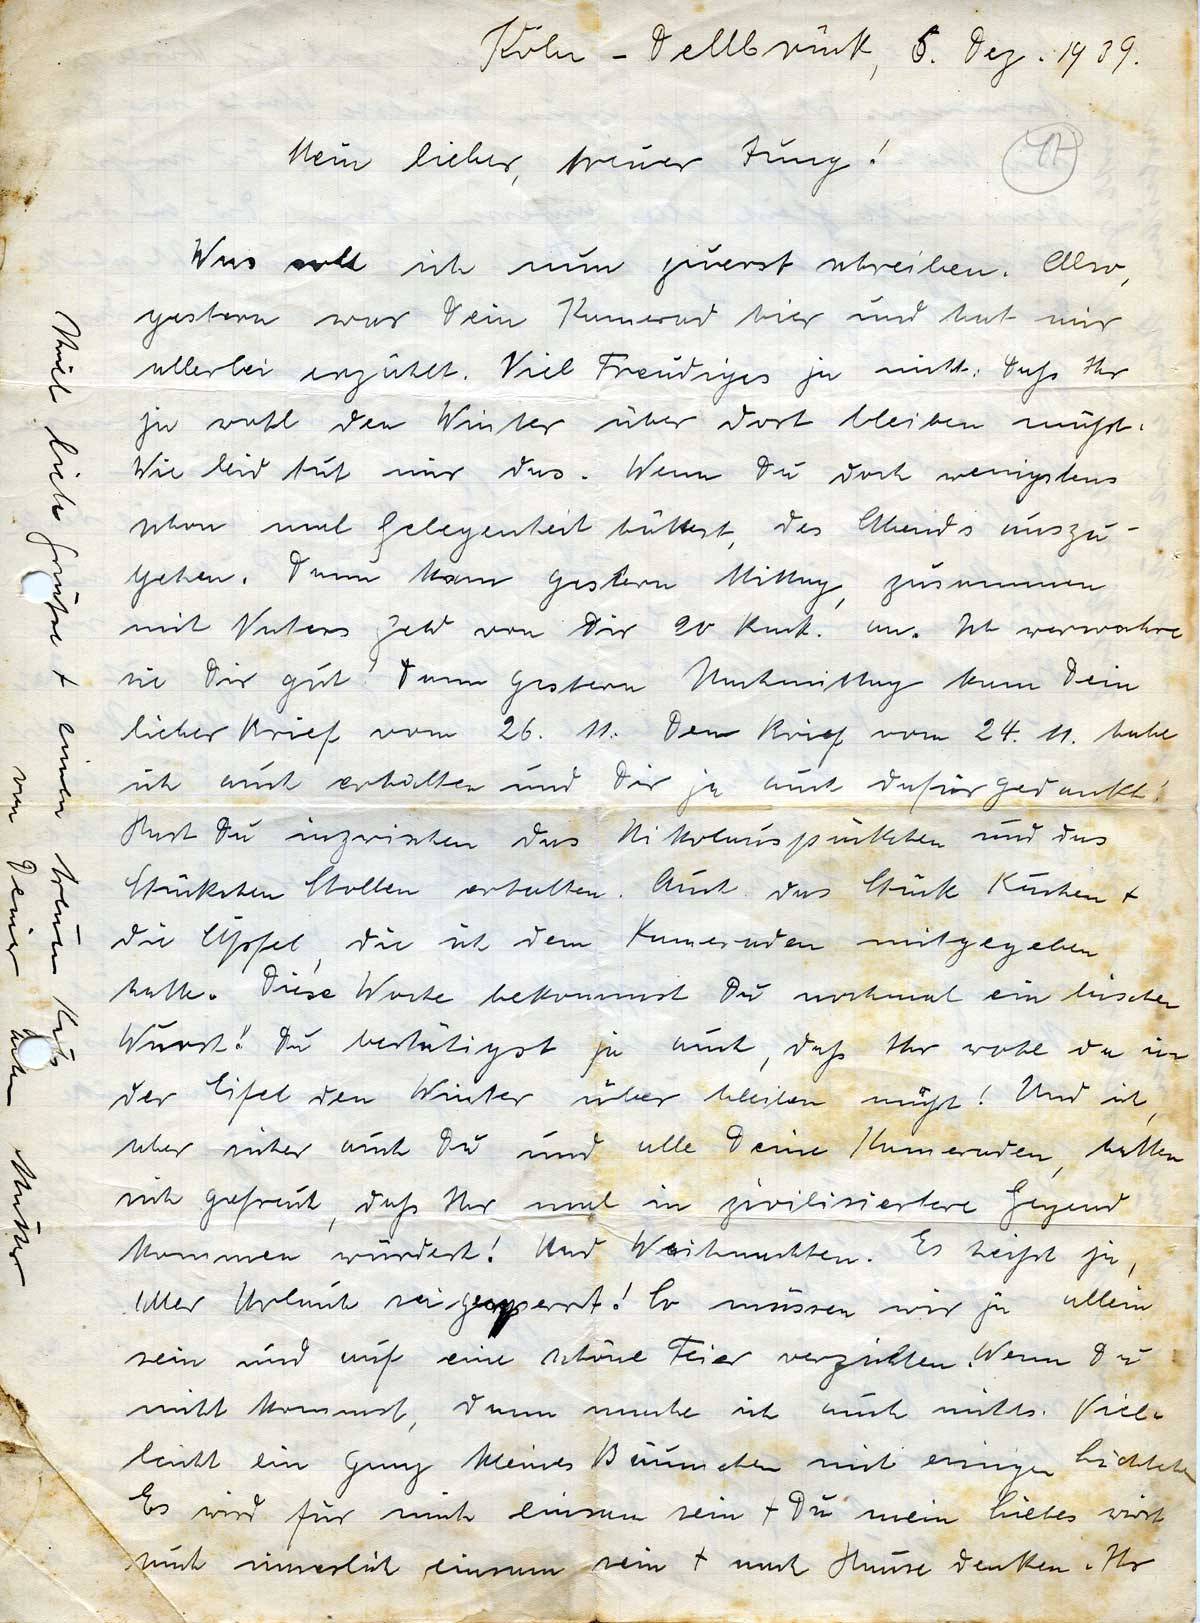 Köln - Dellbrück, 5. Dez. 1939.
17
Mein lieber, treuer Jung!
Was soll ich nun zuerst schreiben. Also,
gestern war Dein Kamerad hier und hat mir
allerlei erzählt. Viel Freudiges ja nicht. Daß Ihr
ja wohl den Winter über dort bleiben müßt.
Wie leid tut mir das. Wenn Du doch wenigstens
schon mal Gelegenheit hättest, des Abends auszu-
gehen. Dann kam gestern Mittag, zusammen
mit Vaters Geld von Dir 20 Rmk. an. Ich verwahre
sie Dir gut! Dann gestern Nachmittag kam Dein
lieber Brief vom 26. 11. Den Brief vom 24. 11. habe
ich auch erhalten und Dir ja auch dafür gedankt!
Hast Du inzwischen das Nikolauspäckchen und das
Stückchen Stollen erhalten. Auch das Stück Kuchen +
die Äpfel, die ich dem Kameraden mitgegeben
hatte. Diese Woche bekommst Du nochmal ein bischen
Wurst! Du bestätigst ja auch, daß Ihr wohl da in
der Eifel den Winter über bleiben müßt! Und ich,
aber sicher auch Du und alle Deine Kameraden, hatten
sich gefreut, daß Ihr mal in zivilisiertere Gegend
kommen würdet! Und Weihnachten. Es heißt ja,
aller Urlaub sei gesperrt! So müssen wir ja allein
sein und auf eine schöne Feier verzichten. Wenn Du
nicht kommst, dann mache ich auch nichts. Viel-
leicht ein ganz kleines Bäumchen mit einigen Lichtchen
Es wird für mich einsam sein + Du mein Liebes wirst
auch innerlich einsam sein + nach Hause denken. Ihr
Viel liebe Grüße + einen treuen Kuß
von Deiner lieben Mutter